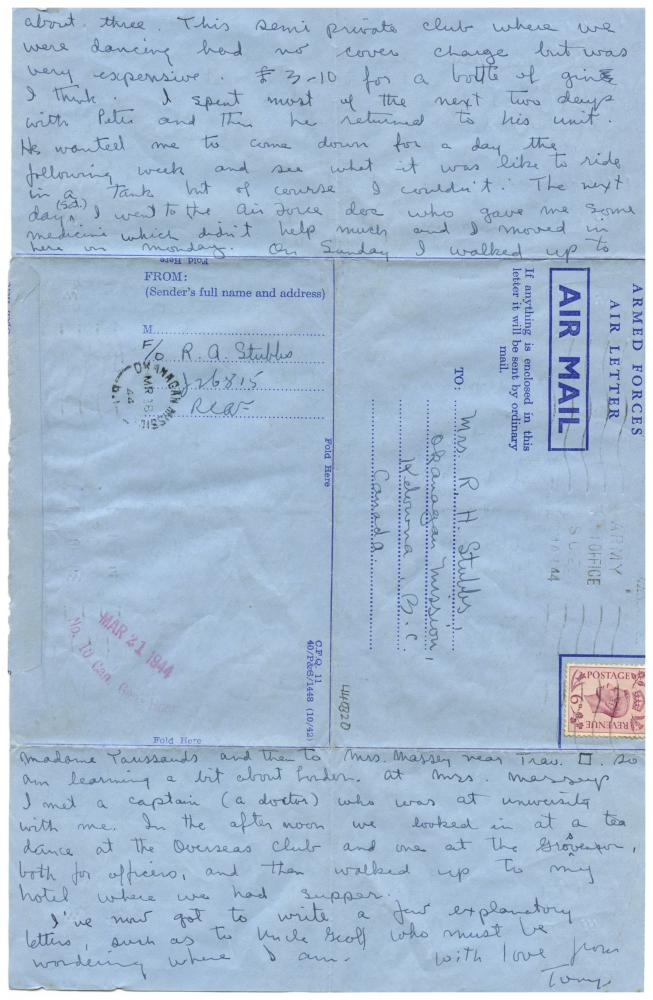 about three. This semi private club where we
were dancing had no cover charge but was
very expensive. £3-10 for a bottle of gin
I think. I spent most of the next two days
with Peter and then he returned to his unit.
He wanted me to come down for a day the
following week and see what it was like to ride
in a tank but of course I couldn't. The next
day (Sat.) I went to the Air Force doc who gave me some
medicine which didn't help much and I moved in
here on monday. On Sunday I walked up to
Fold Here
FROM:
(Sender's full name and address)
M
F/O R. A. Stubbs
J26815
RCAF
OKANAGAN MISSION
MR 28
44
B.C.
Fold Here
MAR 21 1944
No. 10 Can.
C.F.Q. 11
40/P&S/1448 (10/42)
Fold Here
ARMED FORCES
AIR LETTER
AIR MAIL
If anything is enclosed in this
letter it will be sent by ordinary
mail.
TO:
Mrs. R. H. Stubbs,
Okanagan Mission,
Kelowna, B.C.
Canada.
ARMY
OFFICE
44
POSTAGE
6D
REVENUE
madame Taussauds and then to Mrs. Massey near Trav. □. so
am learning a bit about london. At mrs. masseys
I met a captain (a doctor) who was at university
with me. In the after noon we looked in at a tea
dance at the Overseas club and one at the Grosvenor,
both for officers, and then walked up to my
hotel where we had supper.
I've now got to write a few explanatory
letters, such as to Uncle Geoff who must be
wondering where I am. with love from
Tony